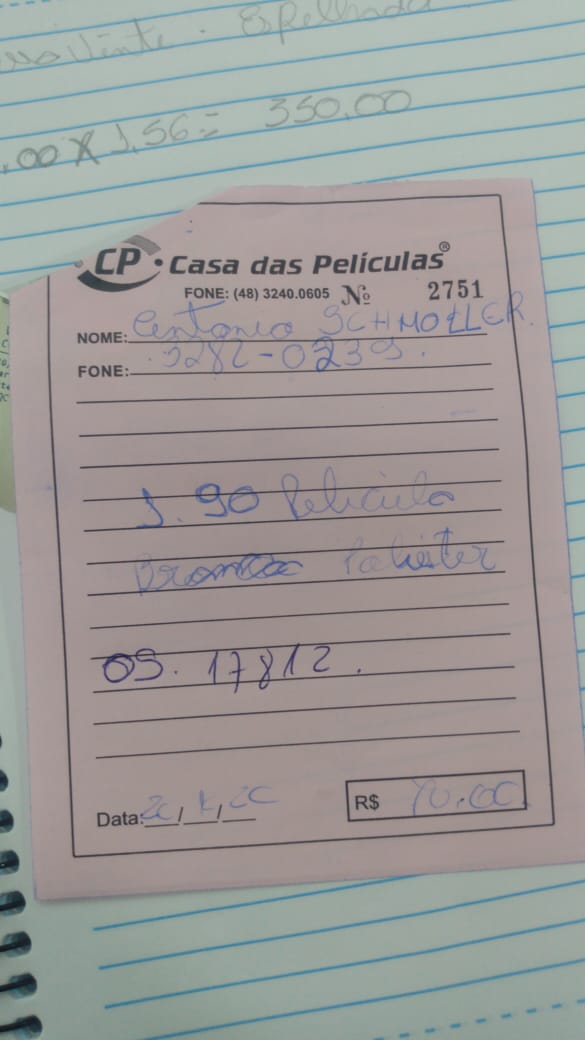 Espelhada
,00 X 1,56 = 350,00
CP · Casa das Películas®
FONE: (48) 3240.0605 Nº 2751
NOME: Antonio SCHMOLLER.
FONE: 3282-0239.
1.90 Pelicula
Branca Poliester
OS. 17812.
Data: / /
R$ 70,00.